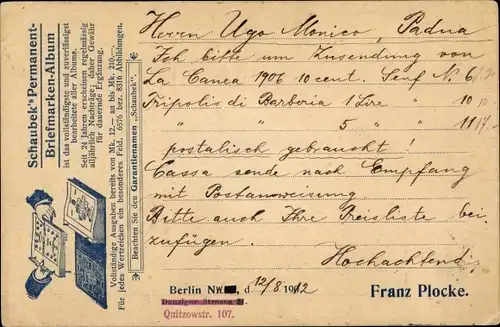 Schaubek's Permanent-
Briefmarken-Album
ist das vollständigste und zuverlässigst
bearbeitete aller Albums.
Seit 24 Jahren erscheinen regelmässig
alljährlich Nachträge; daher Gewähr
für dauernde Ergänzung.
Vollständige Ausgaben bereits von Mk. 12.— an bis Mk. 210.—.
Für jedes Wertzeichen ein besonderes Feld. 6576 bez. 8316 Abbildungen.
Beachten Sie den Garantienamen „Schaubek".
Herrn Ugo Monico, Padua
Ich bitte um Zusendung von
La Canea 1906 10 cent. Senf No 6
Tripolis di Barberia 1 Lire " 10
" " 5 " " 11
postalisch gebraucht!
Cassa sende nach Empfang
mit Postanweisung
Bitte auch Ihre Preisliste bei-
zufügen.
Hochachtend
Berlin NW, d 12/8 1912 Franz Plocke.
Danziger Strasse
Quitzowstr. 107.